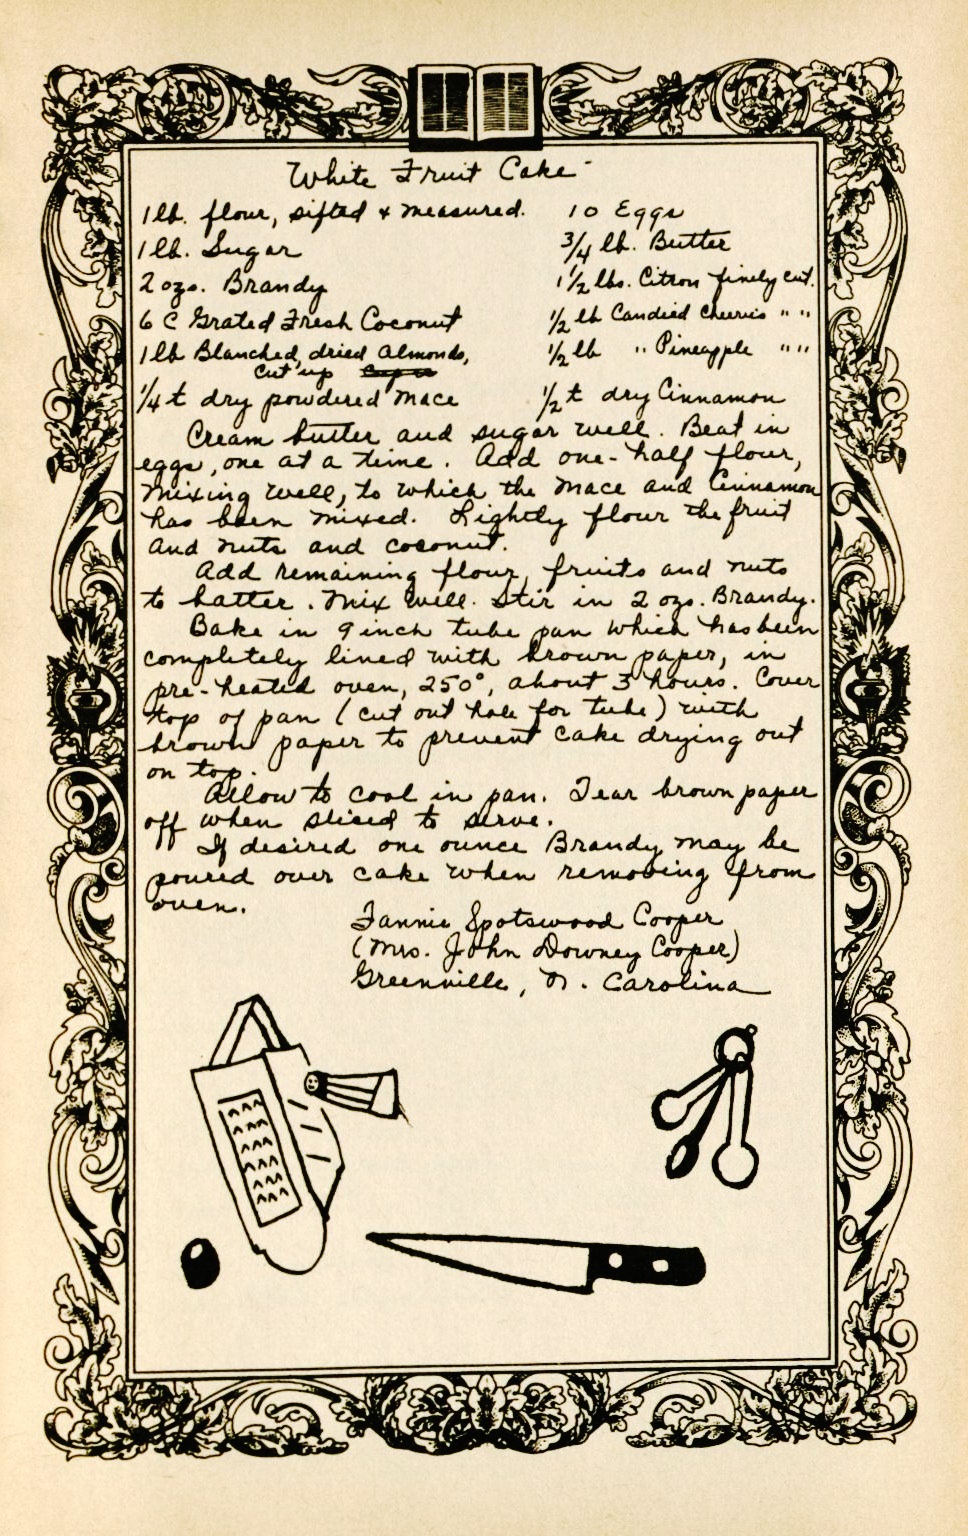 White Fruit Cake
1 lb. flour, sifted & measured.   10 Eggs
1 lb. Sugar   3/4 lb. Butter
2 ozs. Brandy   1 1/2 lbs. Citron finely cut.
6 C Grated Fresh Coconut   1/2 lb Candied Cherries " "
1 lb Blanched, dried Almonds,   1/2 lb " Pineapple " "
cut up
1/4 t dry powdered Mace   1/2 t dry Cinnamon
Cream butter and sugar well. Beat in
eggs, one at a time. Add one-half flour,
mixing well, to which the Mace and Cinnamon
has been mixed. Lightly flour the fruit
and nuts and coconut.
Add remaining flour, fruits and nuts
to batter. Mix well. Stir in 2 ozs. Brandy.
Bake in 9 inch tube pan which has been
completely lined with brown paper, in
pre-heated oven, 250°, about 3 hours. Cover
top of pan (cut out hole for tube) with
brown paper to prevent cake drying out
on top.
Allow to cool in pan. Tear brown paper
off when sliced to serve.
If desired one ounce Brandy may be
poured over cake when removing from
oven.
Fannie Spotswood Cooper
(Mrs. John Downey Cooper)
Greenville, N. Carolina